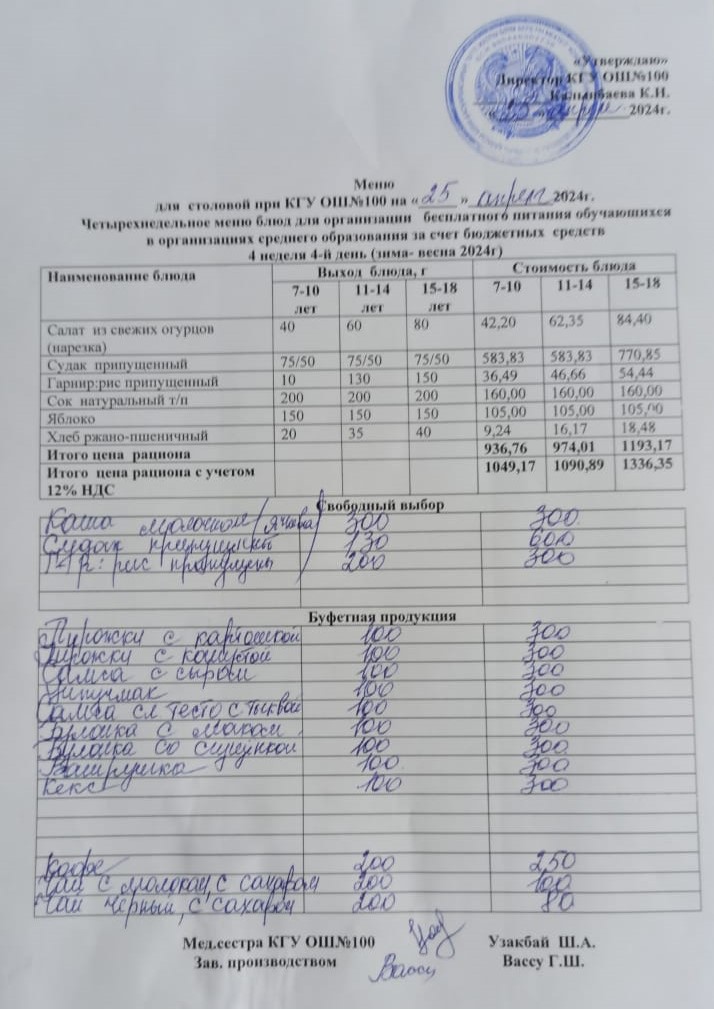 «Утверждаю»
Директор КГУ ОШ№100
Калыбаева К.И.
2024г.
Меню
для столовой при КГУ ОШ№100 на «25» апрель 2024г.
Четырехнедельное меню блюд для организации бесплатного питания обучающихся
в организациях среднего образования за счет бюджетных средств
4 неделя 4-й день (зима- весна 2024г)
Наименование блюда Выход блюда, г Стоимость блюда
7-10 лет 11-14 лет 15-18 лет 7-10 11-14 15-18
Салат из свежих огурцов (нарезка) 40 60 80 42,20 62,35 84,40
Судак припущенный 75/50 75/50 75/50 583,83 583,83 770,85
Гарнир:рис припущенный 10 130 150 36,49 46,66 54,44
Сок натуральный т/п 200 200 200 160,00 160,00 160,00
Яблоко 150 150 150 105,00 105,00 105,00
Хлеб ржано-пшеничный 20 35 40 9,24 16,17 18,48
Итого цена рациона 936,76 974,01 1193,17
Итого цена рациона с учетом 12% НДС 1049,17 1090,89 1336,35
Свободный выбор
Каша молочном 300 300
Судак припущенный 130 600
Гар: рис припущены 200 300
Буфетная продукция
Пирожки с картошкой 100 300
Пирожки с капустой 100 300
Самса с сыром 100 300
100 300
Самса сл тесто с тыквой 100 300
Булочка с маком 100 300
Булочка со сгущенкой 100 300
Ватрушка 100 300
Кекс 100 300
Кофе 200 250
Чай с молоком, с сахаром 200 100
Чай черный, с сахаром 200 80
Мед.сестра КГУ ОШ№100 Узакбай Ш.А.
Зав. производством Вассу Вассу Г.Ш.